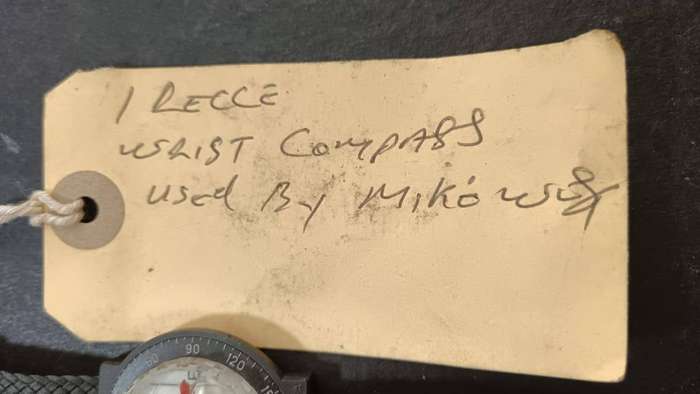 1 RECCE
WRIST COMPASS
used By MIKÓ
90
120